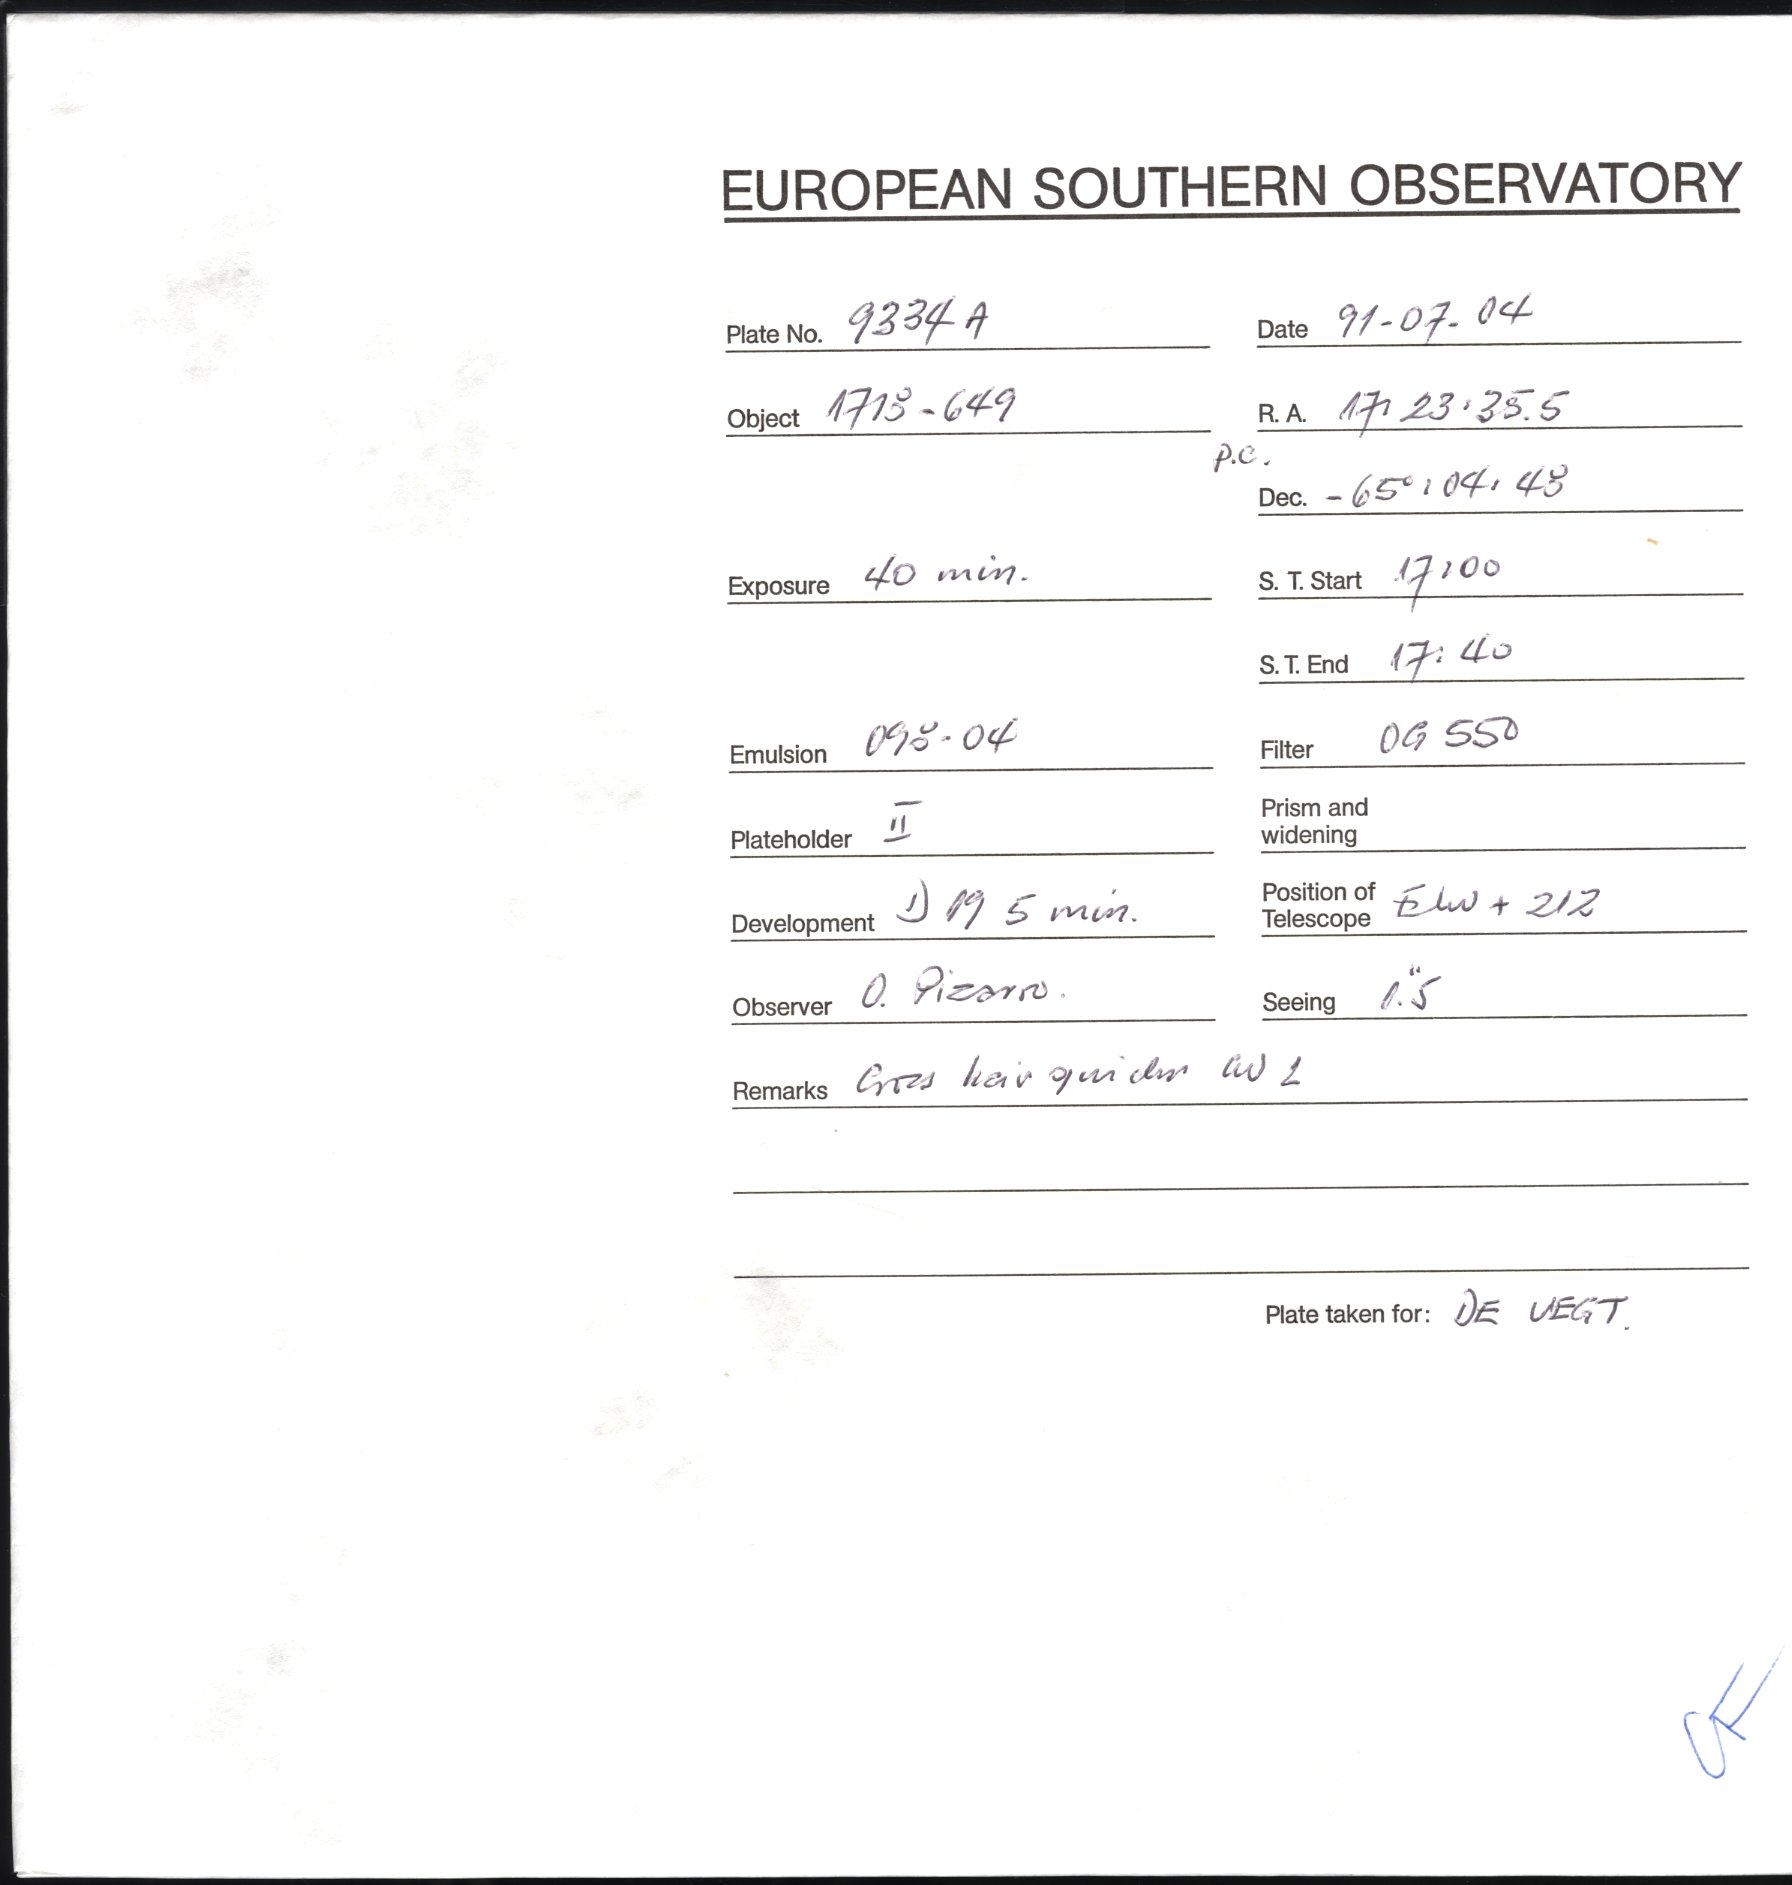 EUROPEAN SOUTHERN OBSERVATORY
Plate No. 9334 A Date 91-07-04
Object 1718-649 R. A. 17:23:35.5
p.c.
Dec. -65°:04:48
Exposure 40 min. S. T. Start 17:00
S. T. End 17:40
Emulsion 098-04 Filter OG 550
Plateholder II Prism and
widening
Development D 19 5 min. Position of
Telescope + 212
Observer O. Pizarro. Seeing 1."5
Remarks Cross hair
Plate taken for: DE VEGT.